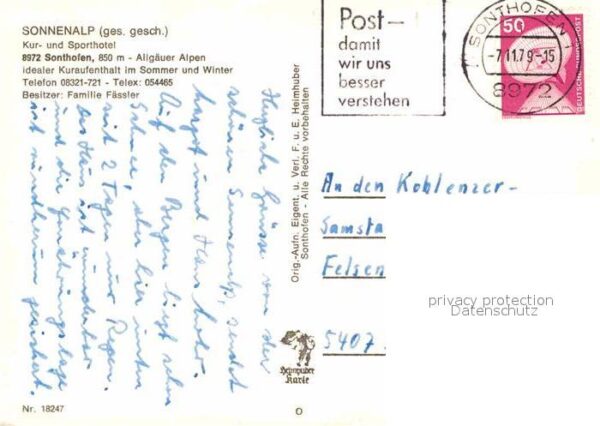 SONNENALP (ges. gesch.)
Kur- und Sporthotel
8972 Sonthofen, 850 m - Allgäuer Alpen
idealer Kuraufenthalt im Sommer und Winter
Telefon 08321-721 - Telex: 054465
Besitzer: Familie Fässler
Post-
damit
wir uns
besser
verstehen
SONTHOFEN 1
-7.11.79-15
8972
50
DEUTSCHE BUNDESPOST
Herzliche Grüsse von der
schönen Sonnenalp, sendet
Margot und Hans
Auf den Bergen liegt schon
Schnee, aber hier unten
seit 2 Tagen nur Regen.
Das Haus ist wunderbar
und die Ernährungslage
ist rundherum gesichert.
Orig.-Aufn. Eigent. u. Verl. F. u. E. Heimhuber
Sonthofen - Alle Rechte vorbehalten
An den Koblenzer-
Samsta
Felsen
5407
privacy protection
Datenschutz
Heimhuber
Karte
Nr. 18247
O